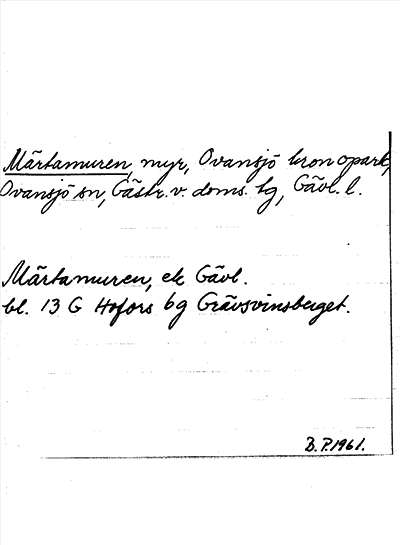 Märtamuren, myr, Ovansjö kronopark,
Ovansjö sn, Gästr. v. doms. tg, Gävl. l.
Märtamuren, ek Gävl.
bl. 13 G Hofors 6g Grävsvinsberget.
B.P. 1961.